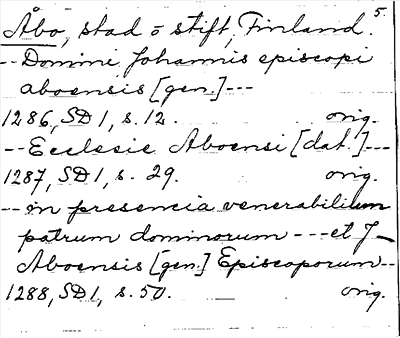 Åbo, stad o stift, Finland. 5.
-- Domini Johannis episcopi
aboensis [gen.] ---
1286, SD 1, s. 12. orig.
-- Ecclesie Aboensi [dat.] ---
1287, SD 1, s. 29. orig.
-- in presencia venerabilium
patrum dominorum --- et J_
Aboensis [gen.] Episcoporum --
1288, SD 1, s. 50. orig.